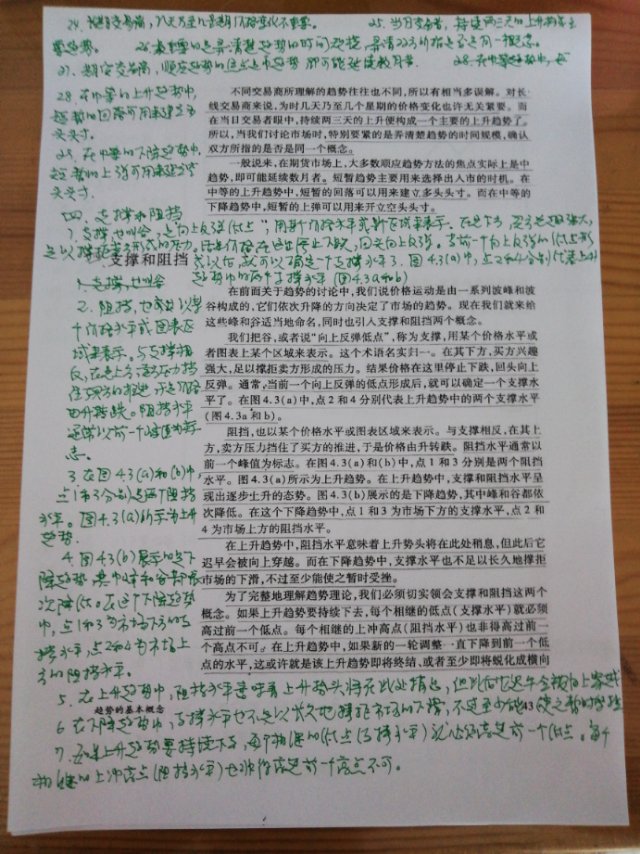 24. 长线交易商,几天乃至几个星期价格变化不重要。 25. 当日交易者,持续两三天的上升构成主
要趋势。 26. 最重要的是弄清楚趋势的时间规模,弄清双方所指是否是同一概念。
27. 期货交易商,顺应趋势的焦点是中趋势,即可能延续数月者。 28. 在中等趋势中,
28. 在中等的上升趋势中,
短暂的回落可用来建立多
头头寸。
29. 在中等的下降趋势中,
短暂的上弹可用来建立空
头头寸.
不同交易商所理解的趋势往往也不同,所以有相当多误解。对长
线交易商来说,为时几天乃至几个星期的价格变化也许无关紧要。而
在当日交易者眼中,持续两三天的上升便构成一个主要的上升趋势了。
所以,当我们讨论市场时,特别要紧的是弄清楚趋势的时间规模,确认
双方所指的是否是同一个概念。
一般说来,在期货市场上,大多数顺应趋势方法的焦点实际上是中
趋势,即可能延续数月者。短暂趋势主要用来选择出入市的时机。在
中等的上升趋势中,短暂的回落可以用来建立多头头寸。而在中等的
下降趋势中,短暂的上弹可以用来开立空头头寸。
四、支撑和阻挡
1. 支撑,也叫谷,是"向上反弹低点",用某个价格水平或某个区域来表示。在其下方,买方兴趣强大,
足以撑拒卖方形成的压力。结果价格在这里停止下跌,回头向上反弹。当前一个向上反弹的低点形
成以后,就可以确定一个支撑水平了。图4.3(a)中,点2和4分别代表上升
趋势中的两个支撑水平(图4.3a和b)
支撑和阻挡
1. 支撑,也叫谷
2. 阻挡,也家以某
个价格水平或图表区
域来表示,与支撑相
反,在其上方,卖方压力挡
住了买方的推进,于是价格
由升转跌。阻挡水平
通常以前一个峰值为标
志。
3. 在图4.3(a)和(b)中,
点1和3分别是两个阻挡
水平。图4.3(a)所示为上升
趋势.
4. 图4.3(b)展示的是下
降趋势,其中峰和谷都依
次降低。在这个下降趋势
中,点1和3为市场下方的支
撑水平,点2和4为市场上
方的阻挡水平。
在前面关于趋势的讨论中,我们说价格运动是由一系列波峰和波
谷构成的,它们依次升降的方向决定了市场的趋势。现在我们就来给
这些峰和谷适当地命名,同时也引入支撑和阻挡两个概念。
我们把谷,或者说"向上反弹低点",称为支撑,用某个价格水平或
者图表上某个区域来表示。这个术语名实归一。在其下方,买方兴趣
强大,足以撑拒卖方形成的压力。结果价格在这里停止下跌,回头向上
反弹。通常,当前一个向上反弹的低点形成后,就可以确定一个支撑水
平了。在图4.3(a)中,点2和4分别代表上升趋势中的两个支撑水平
(图4.3a和b)。
阻挡,也以某个价格水平或图表区域来表示。与支撑相反,在其上
方,卖方压力挡住了买方的推进,于是价格由升转跌。阻挡水平通常以
前一个峰值为标志。在图4.3(a)和(b)中,点1和3分别是两个阻挡
水平。图4.3(a)所示为上升趋势。在上升趋势中,支撑和阻挡水平呈
现出逐步上升的态势。图4.3(b)展示的是下降趋势,其中峰和谷都依
次降低。在这个下降趋势中,点1和3为市场下方的支撑水平,点2和
4为市场上方的阻挡水平。
在上升趋势中,阻挡水平意味着上升势头将在此处稍息,但此后它
迟早会被向上穿越。而在下降趋势中,支撑水平也不足以长久地撑拒
市场的下滑,不过至少能使之暂时受挫。
为了完整地理解趋势理论,我们必须切实领会支撑和阻挡这两个
概念。如果上升趋势要持续下去,每个相继的低点(支撑水平)就必须
高过前一个低点。每个相继的上冲高点(阻挡水平)也非得高过前一
个高点不可。在上升趋势中,如果新的一轮调整一直下降到前一个低
点的水平,这或许就是该上升趋势即将终结,或者至少即将蜕化成横向
5. 在上升趋势中,阻挡水平意味着上升势头将在此处稍息,但此后它迟早会被向上穿越
趋势的基本概念
43
6. 在下降趋势中,支撑水平也不足以长久地撑拒市场的下滑,不过至少能使之暂时受挫
7. 如果上升趋势要持续下去,每个相继的低点(支撑水平)就必须高过前一个低点。每个
相继的上冲高点(阻挡水平)也非得高过前一个高点不可。